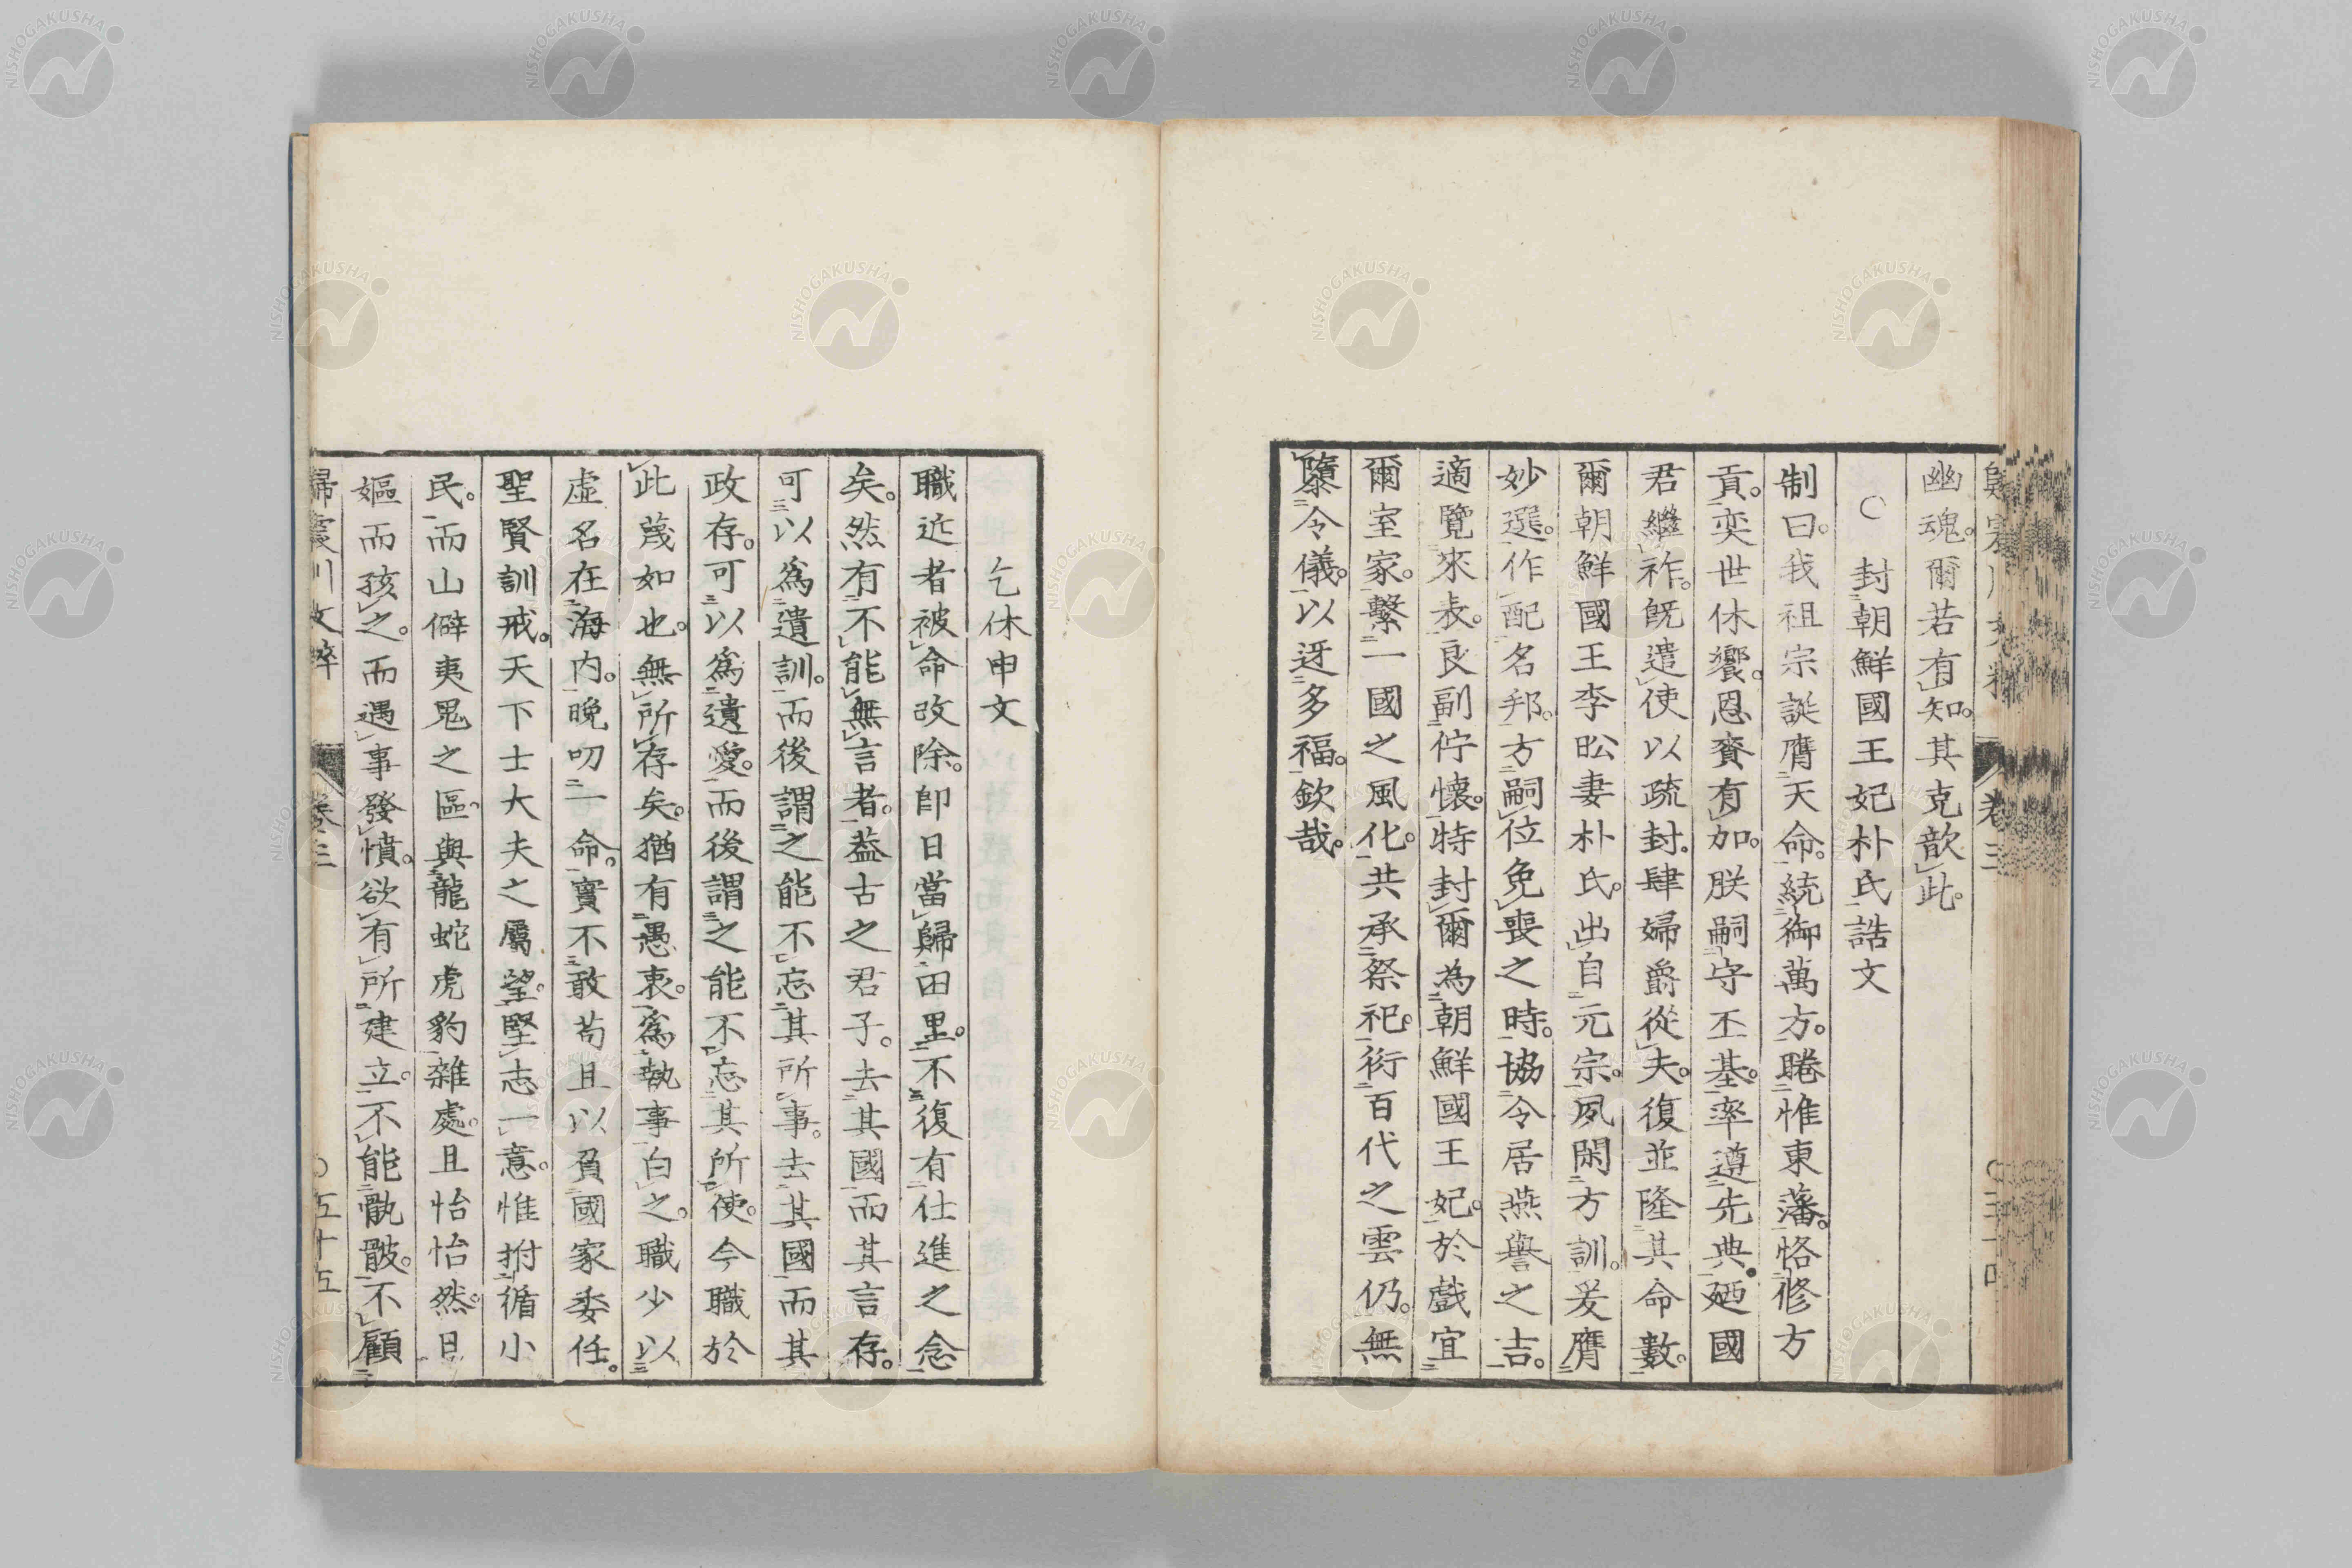 幽魂。爾若有知。其克歆此。
○封朝鮮國王妃朴氏誥文
制曰。我祖宗誕膺天命。統御萬方。睠惟東藩。恪修方
貢。奕世休饗。恩賚有加。朕嗣守丕基。率遵先典。廼國
君繼祚。旣遣使以疏封。肆婦爵從夫。復並隆其命數。
爾朝鮮國王李昖妻朴氏。出自元宗。夙閑方訓。爰膺
妙選。作配名邦。方嗣位免喪之時。協令居燕譽之吉。
適覽來表。良副佇懷。特封爾為朝鮮國王妃。於戲宜
爾室家。繫一國之風化。共承祭祀。衍百代之雲仍。無
隳令儀。以迓多福。欽哉。
卷三
乞休申文
職近者被命改除。卽日當歸田里。不復有仕進之念
矣。然有不能無言者。葢古之君子。去其國而其言存。
可以爲遺訓。而後謂之能不忘其所事。去其國而其
政存。可以爲遺愛。而後謂之能不忘其所使。今職於
此蔑如也。無所存矣。猶有愚衷。爲執事白之。職少以
虛名在海內。晚叨一命。實不敢苟且以負國家委任。
聖賢訓戒。天下士大夫之屬望。堅志一意。惟拊循小
民。而山僻夷鬼之區。與龍蛇虎豹雜處。且怡怡然。日
嫗而孩之。而遇事發憤。欲有所建立。不能骫骳。不顧
歸震川文粹 卷三 ○五十五